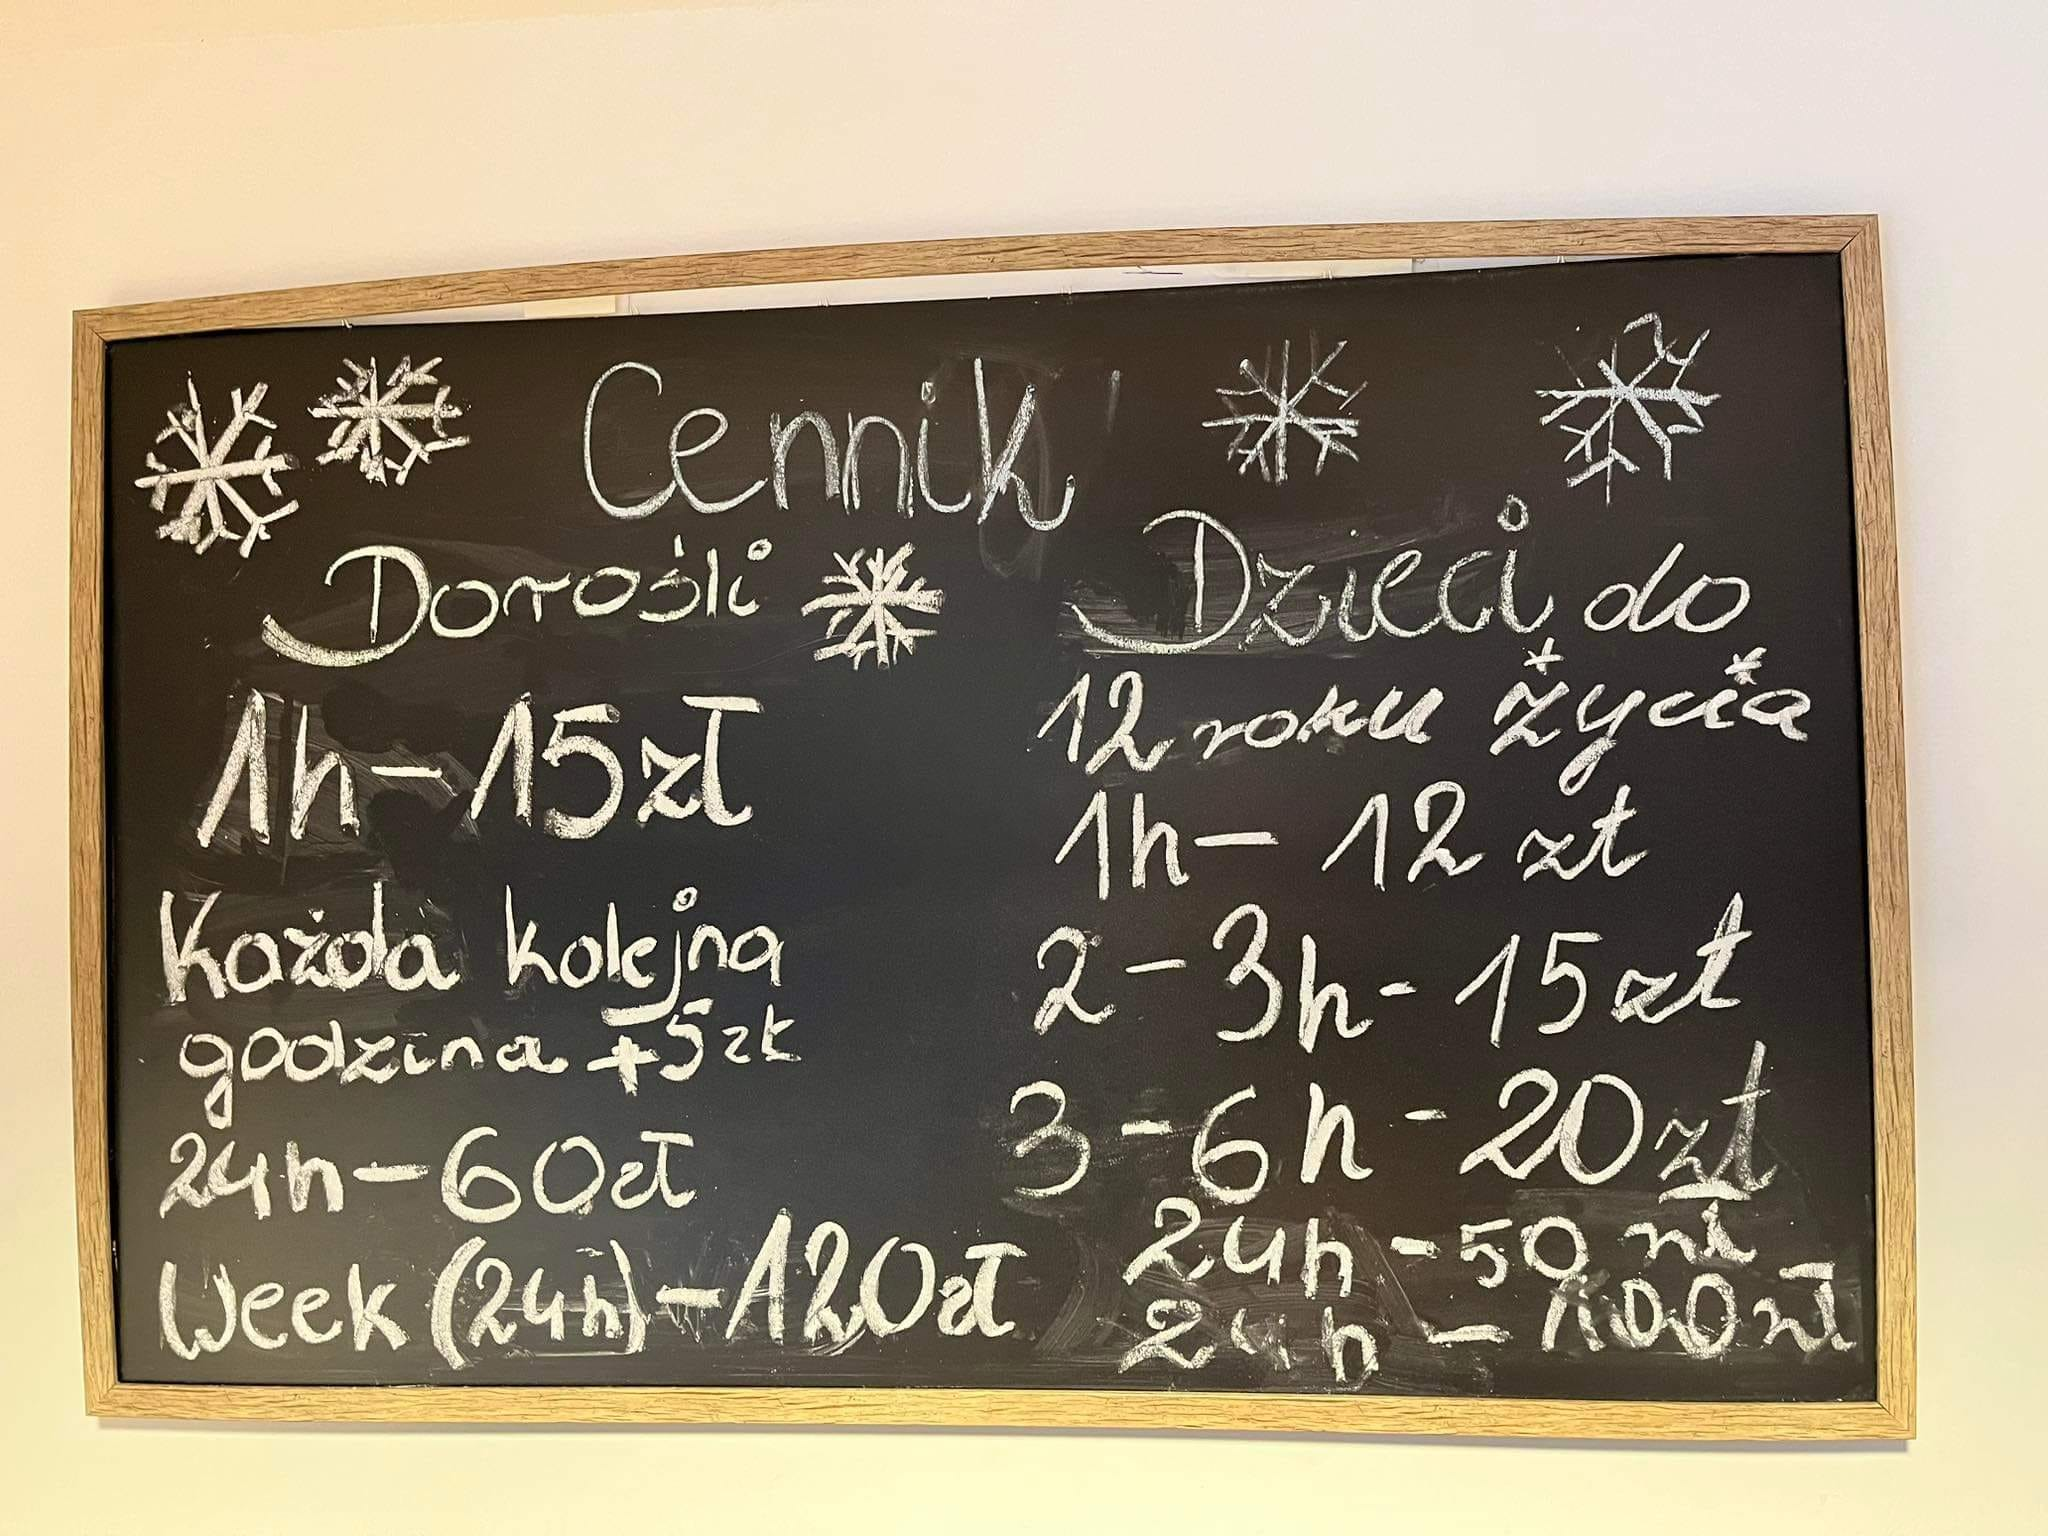 Cennik
Dorośli
1h - 15zł
Każda kolejna
godzina + 5zł
24h - 60zł
Week (24h) - 120zł
Dzieci do
12 roku życia
1h - 12 zł
2 - 3h - 15zł
3 - 6h - 20zł
24h - 50 zł
24h - 100zł